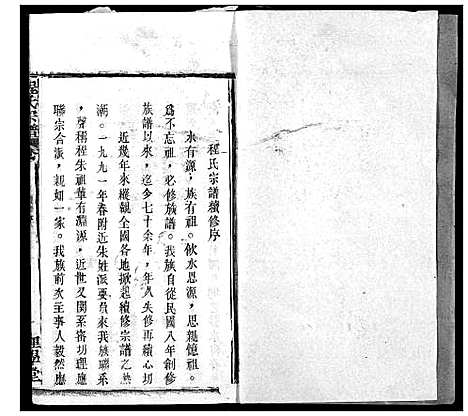 程氏宗譜續修序
水有源，族有祖。飲水思源，思親憶祖。
爲不忘祖，必修族譜。我族自從民國八年創修
族譜以來，迄今七十余年，年久失修再續心切
近幾年來縱觀全國各地掀起續修宗譜之熱
潮。一九九一年春附近朱姓派要員來我族聯系
，聲稱程朱祖華有淵源，近世又關系密切理應
聯宗合派，親如一家。我族前次主事人毅然應
程氏宗譜
理學堂